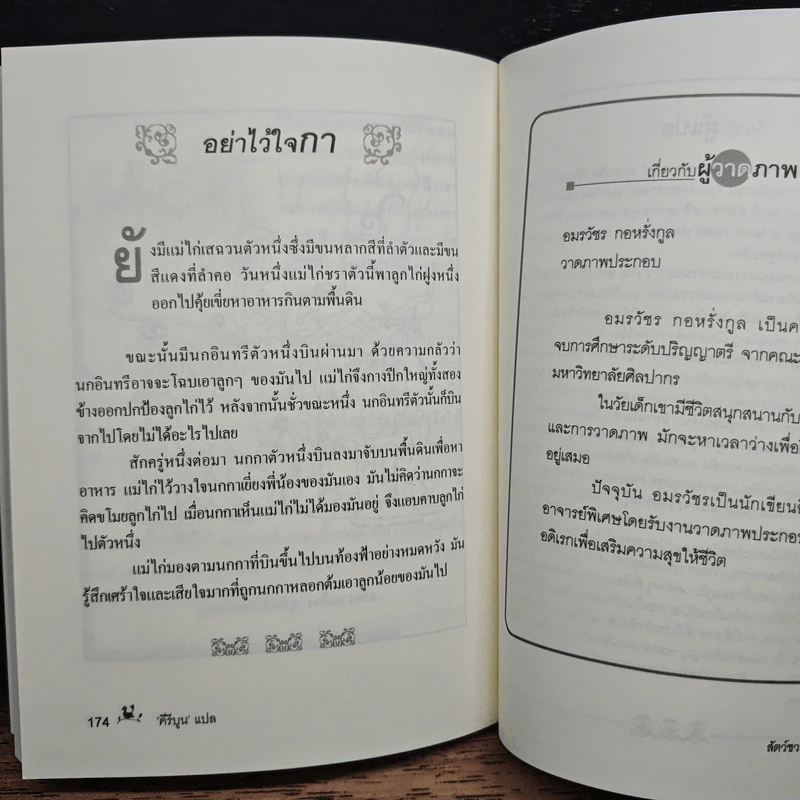 อย่าไว้ใจกา
ยังมีแม่ไก่เสฉวนตัวหนึ่งซึ่งมีขนหลากสีที่ลำตัวและมีขน
สีแดงที่ลำคอ วันหนึ่งแม่ไก่ชราตัวนี้พาลูกไก่ฝูงหนึ่ง
ออกไปคุ้ยเขี่ยหาอาหารกินตามพื้นดิน
ขณะนั้นมีนกอินทรีตัวหนึ่งบินผ่านมา ด้วยความกลัวว่า
นกอินทรีอาจจะโฉบเอาลูกๆ ของมันไป แม่ไก่จึงกางปีกใหญ่ทั้งสอง
ข้างออกปกป้องลูกไก่ไว้ หลังจากนั้นชั่วขณะหนึ่ง นกอินทรีตัวนั้นก็บิน
จากไปโดยไม่ได้อะไรไปเลย
สักครู่หนึ่งต่อมา นกกาตัวหนึ่งบินลงมาจับบนพื้นดินเพื่อหา
อาหาร แม่ไก่ไว้วางใจนกกาเยี่ยงพี่น้องของมันเอง มันไม่คิดว่านกกาจะ
คิดขโมยลูกไก่ไป เมื่อนกกาเห็นแม่ไก่ไม่ได้มองมันอยู่ จึงแอบคาบลูกไก่
ไปตัวหนึ่ง
แม่ไก่มองตามนกกาที่บินขึ้นไปบนท้องฟ้าอย่างหมดหวัง มัน
รู้สึกเศร้าใจและเสียใจมากที่ถูกนกกาหลอกต้มเอาลูกน้อยของมันไป
174 'คีรีบูน' แปล
เกี่ยวกับผู้วาดภาพ
อมรวัชร กอหรั่งกูล
วาดภาพประกอบ
อมรวัชร กอหรั่งกูล เป็นค
จบการศึกษาระดับปริญญาตรี จากคณะ
มหาวิทยาลัยศิลปากร
ในวัยเด็กเขามีชีวิตสนุกสนานกับ
และการวาดภาพ มักจะหาเวลาว่างเพื่อ
อยู่เสมอ
ปัจจุบัน อมรวัชรเป็นนักเขียน
อาจารย์พิเศษโดยรับงานวาดภาพประกอบ
อดิเรกเพื่อเสริมความสุขให้ชีวิต
สัตว์ชว